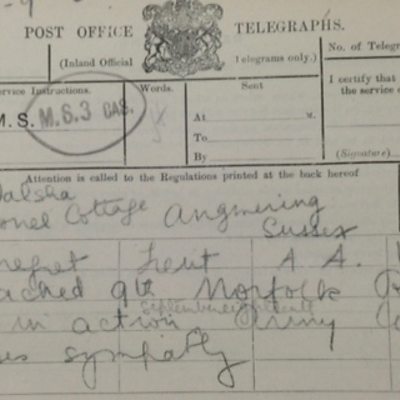 POST OFFICE TELEGRAPHS.
(Inland Official Telegrams only.)
No. of Telegr
Service Instructions.
Words.
Sent
I certify that
the service o
M. S. M.S.3 CAS.
At M.
To
By
(Signature)
Attention is called to the Regulations printed at the back hereof
Cottage Angmering
Sussex
regret Lieut A. A.
ached 9th Norfolk R
in action Army Co
es sympathy